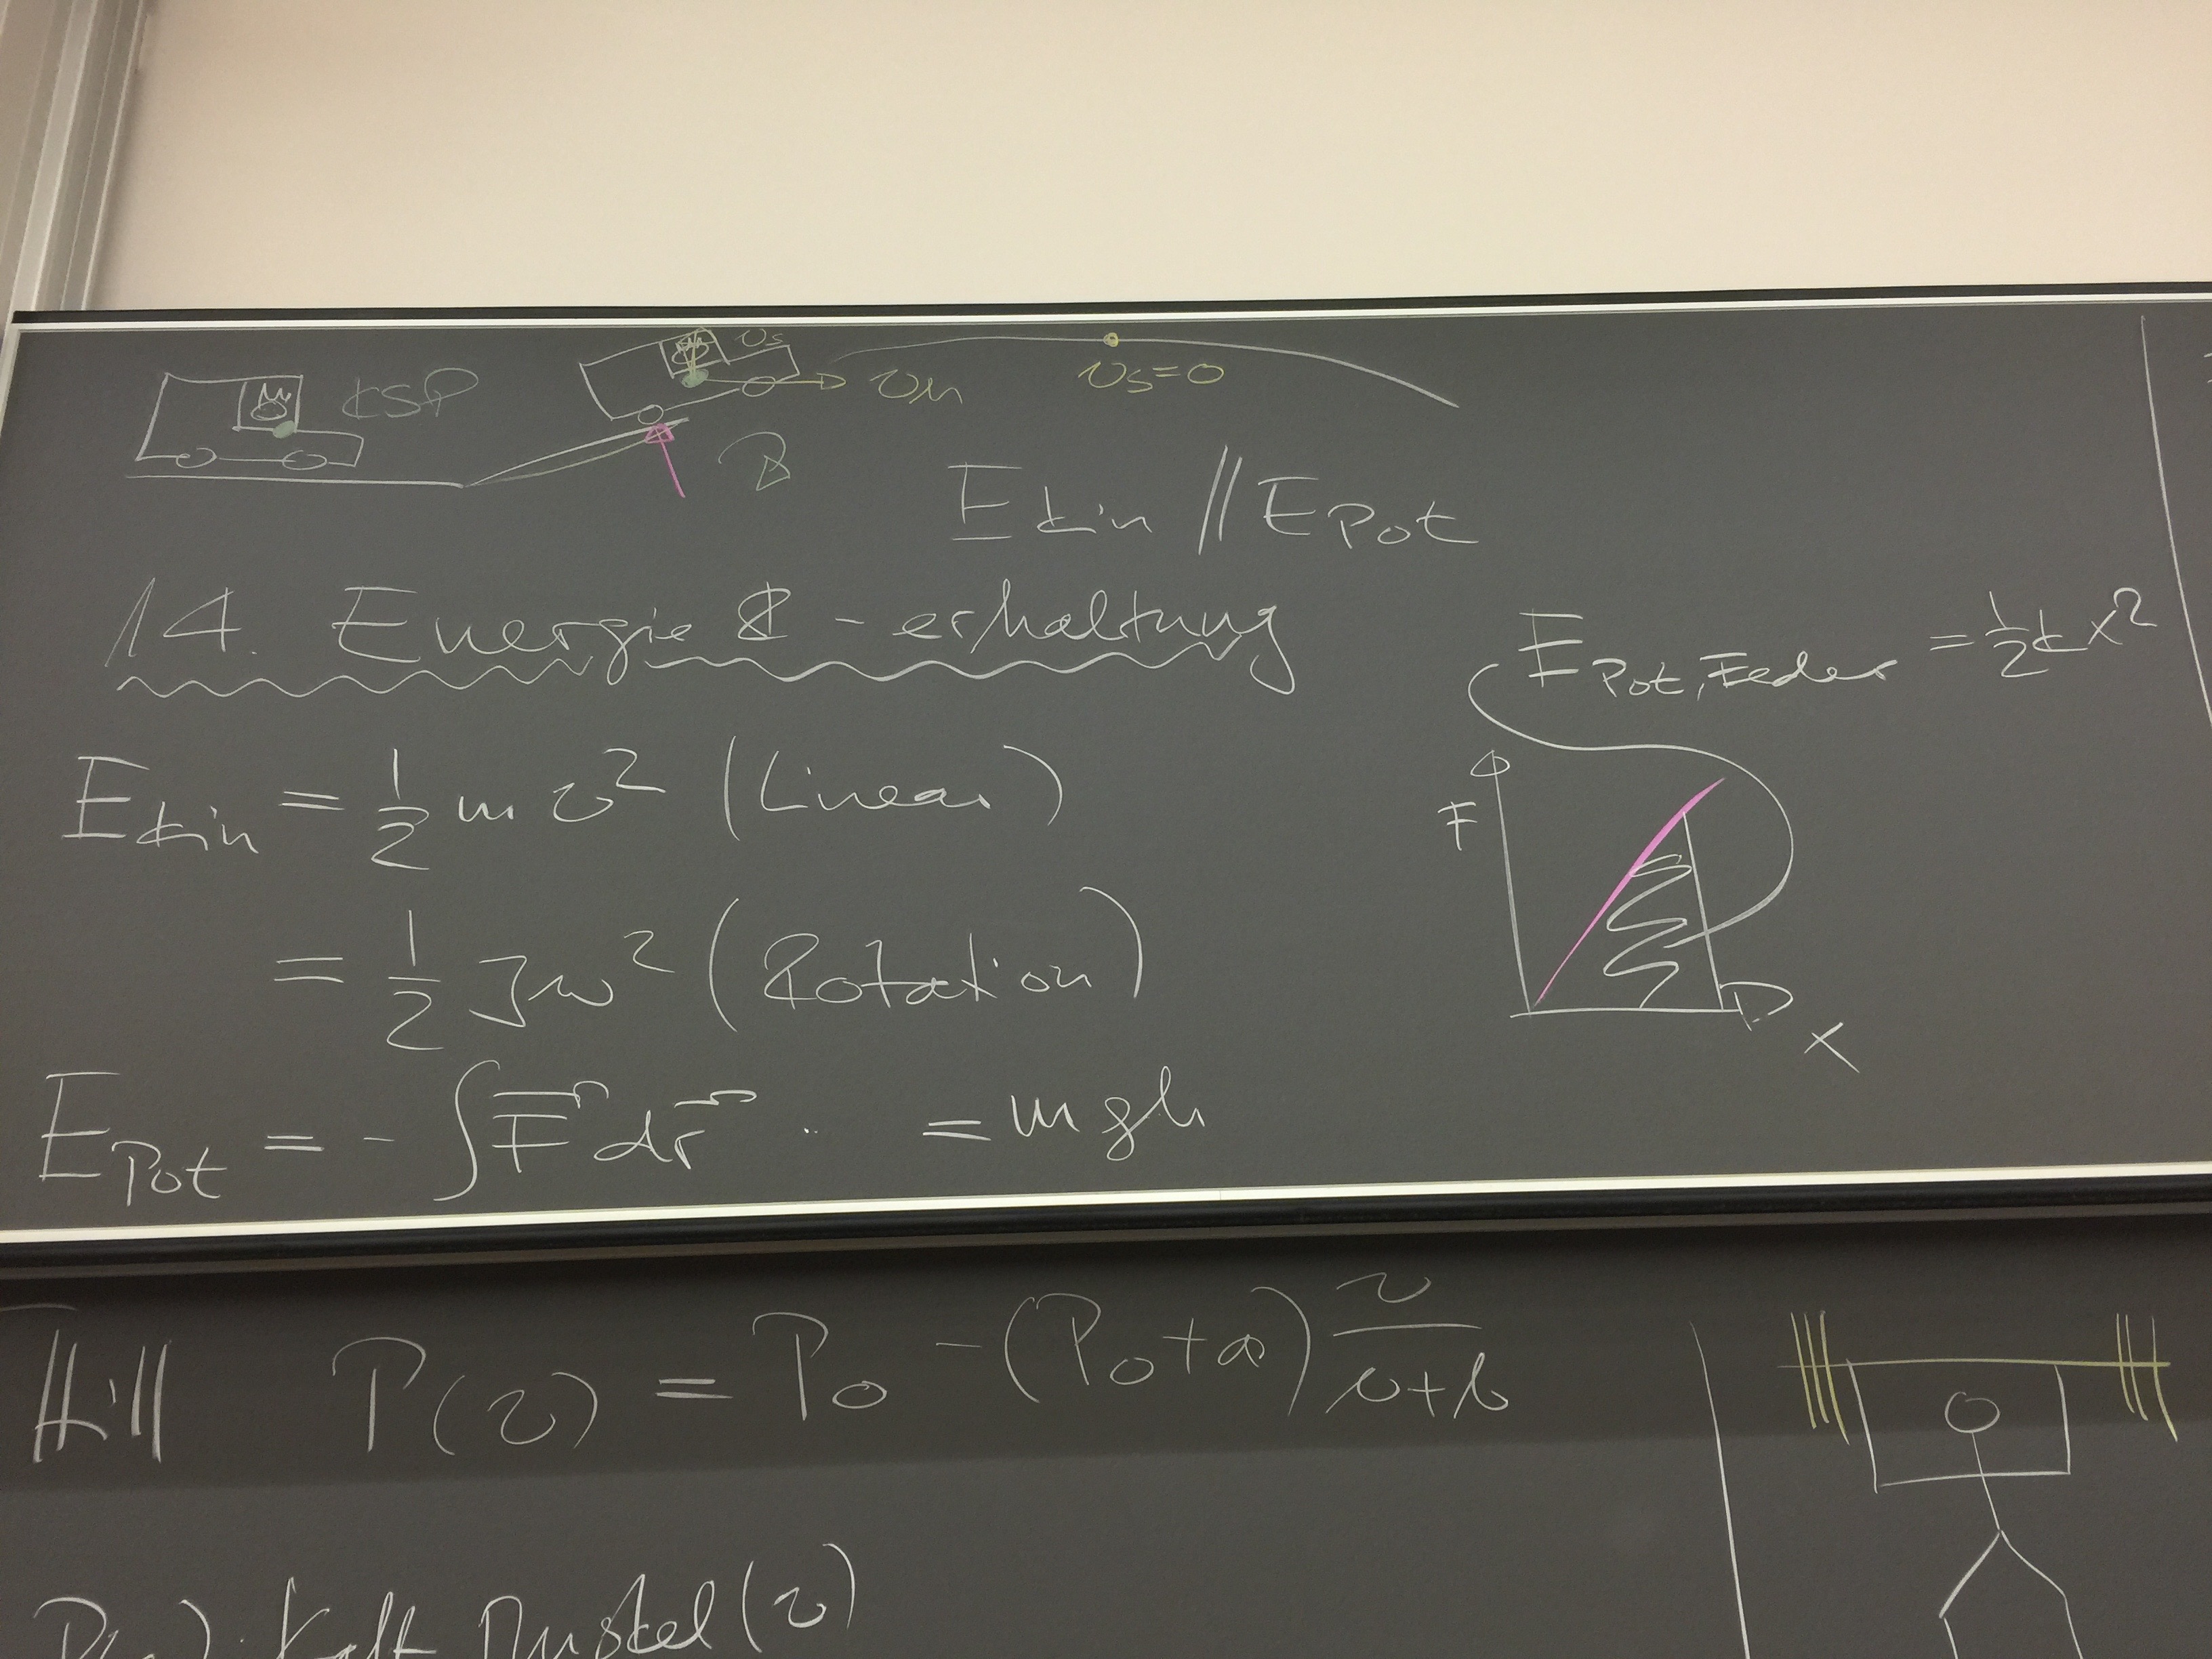 KSP
vs
vM
vs=0
B
Ekin // EPot
14. Energie & -erhaltung
EPot, Feder = 1/2 k x²
Ekin = 1/2 m v² (Linear)
F
= 1/2 J ω² (Rotation)
x
EPot = - ∫ F⃗ dr⃗ .. = mgh
Hill P(v) = P0 - (P0 + a) v/(v+b)
P(v): Kraft Muskel (v)